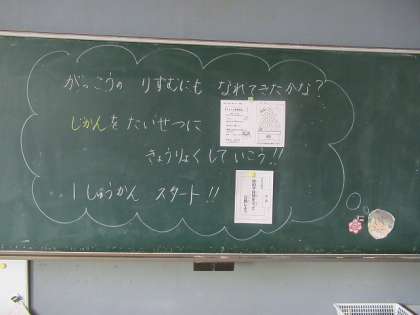 がっこうの りずむにも なれてきたかな?
じかんをたいせつに
きょうりょくしていこう!!
1しゅうかん スタート!!